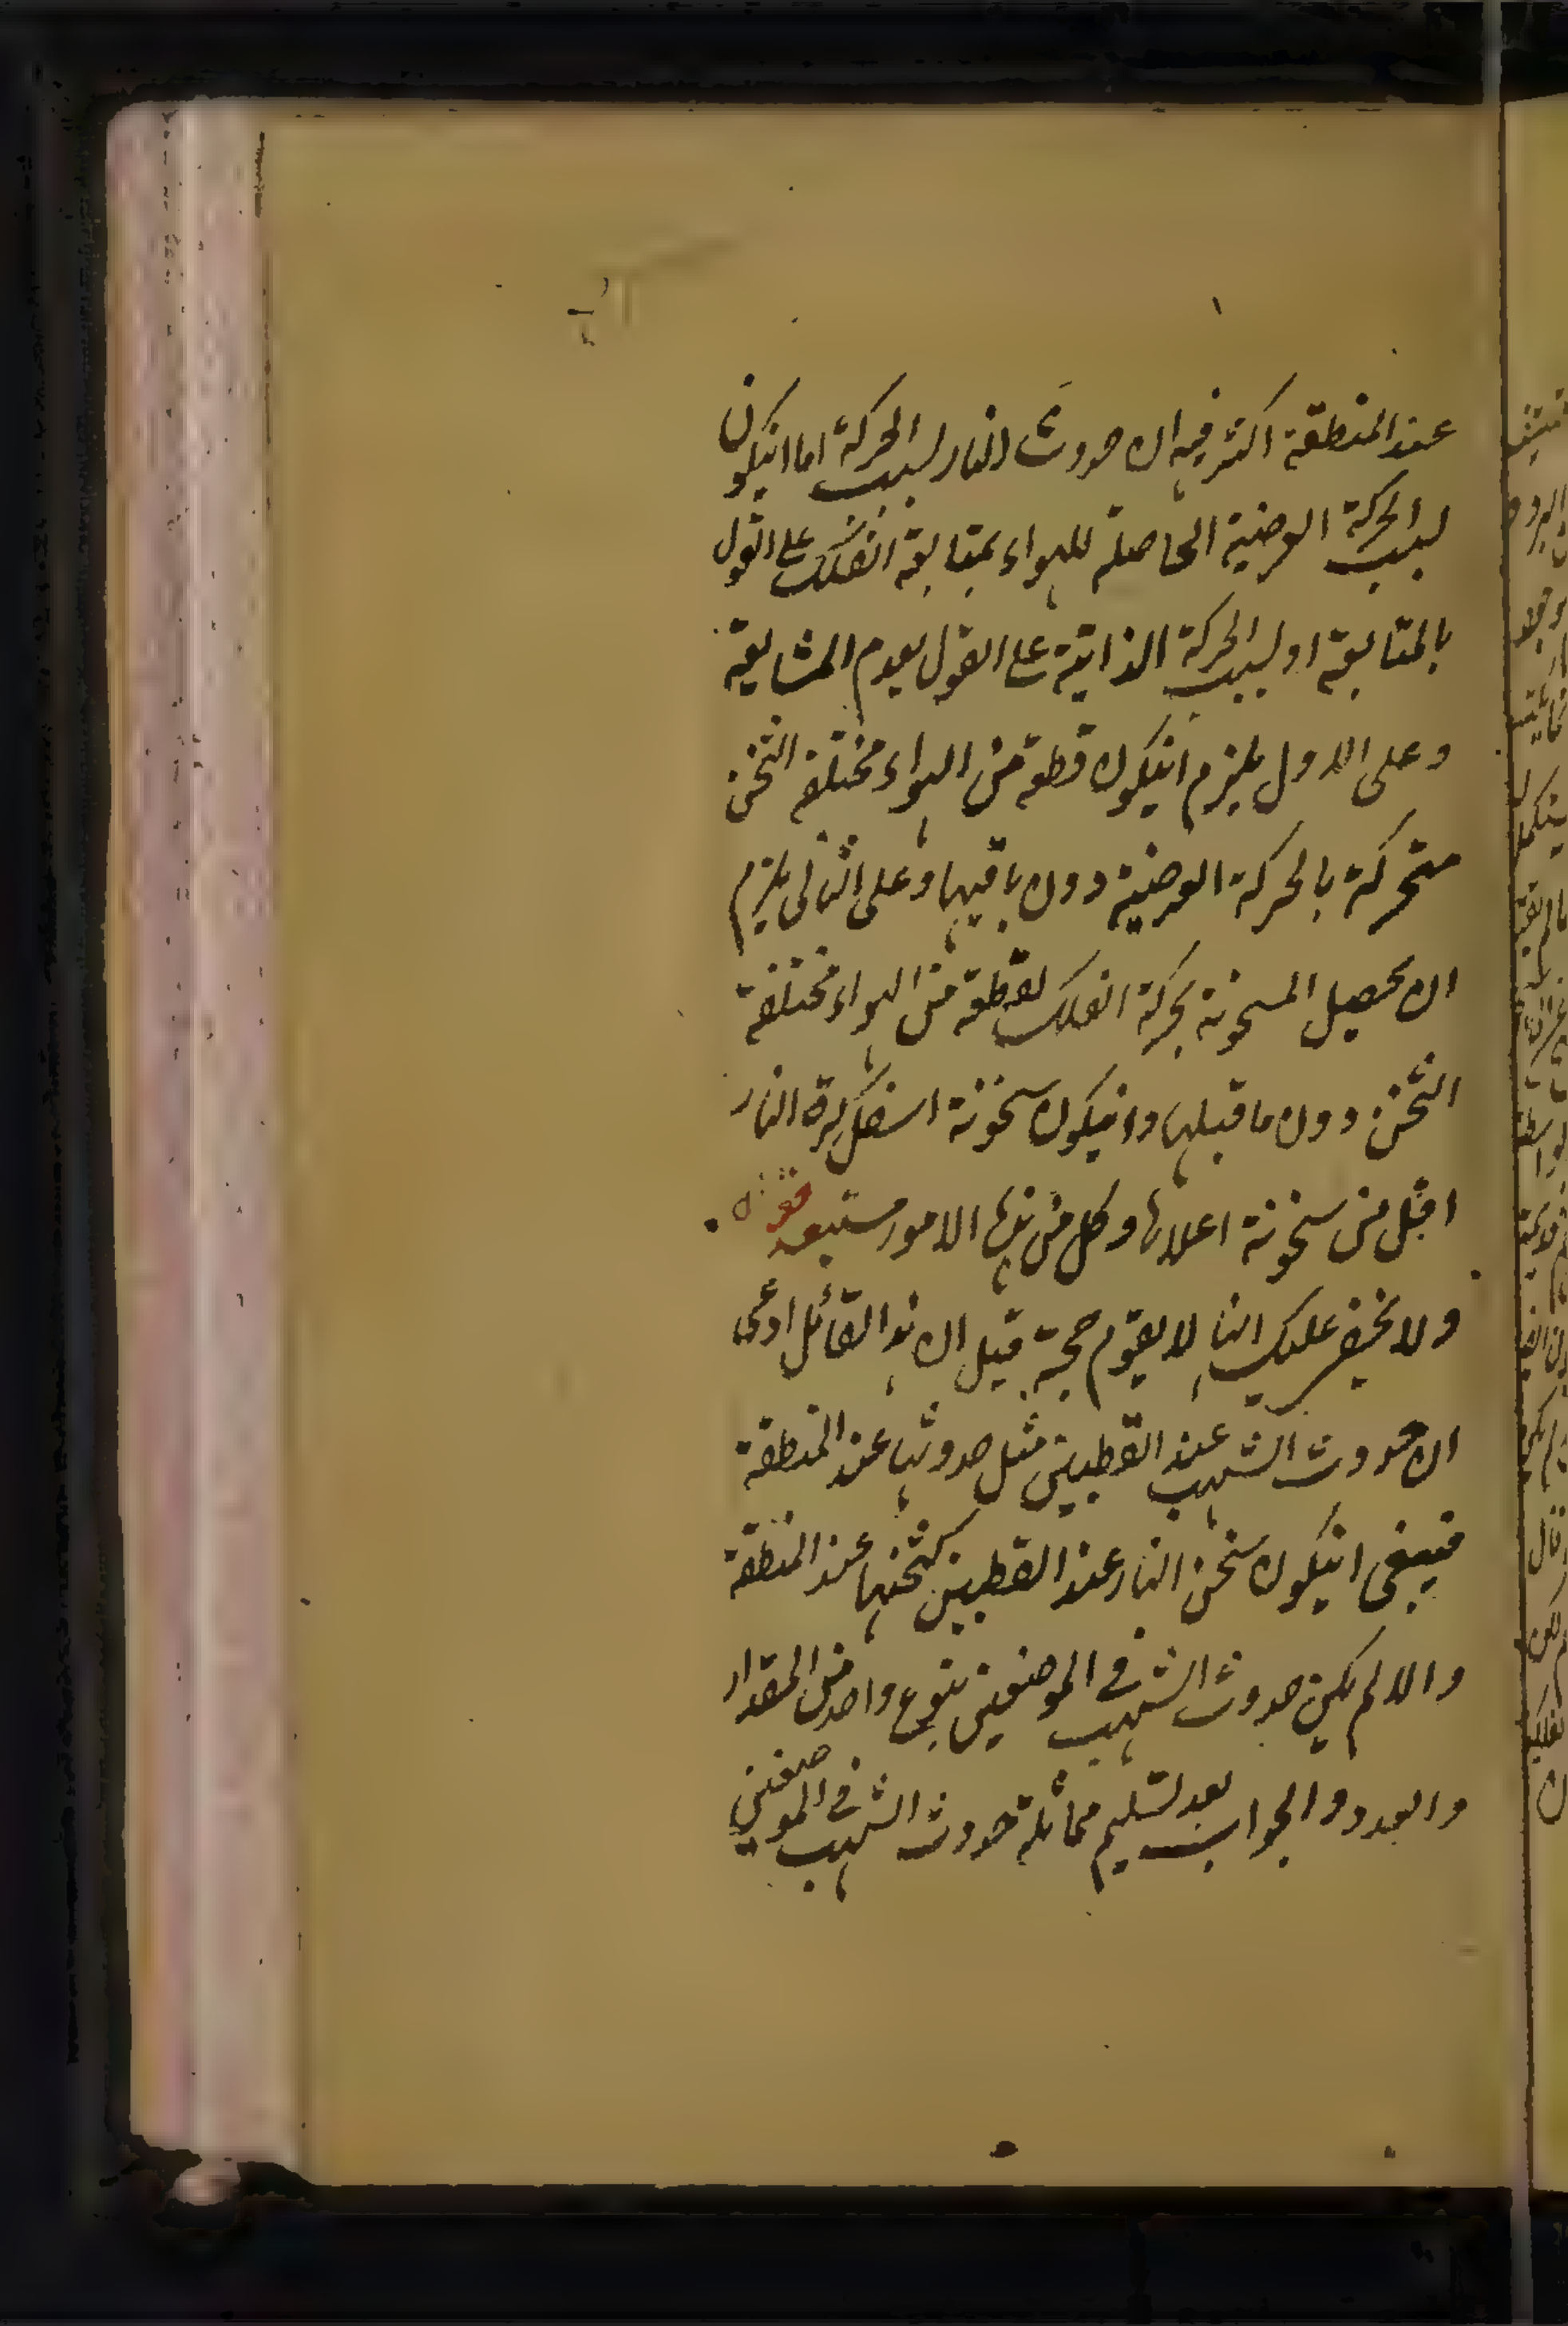 عند المنطقة اكثر فيه ان حدوث النار بسبب الحركة اما انيكون
بسبب الحركة العرضية الحاصلة للهواء بمتابعة الفلك على القول
بالمتابعة او بسبب الحركة الذاتية على القول بعدم المشايعة
وعلى الاول يلزم انيكون قطعة من الهواء مختلفة الثخن
متحركة بالحركة العرضية دون باقيها وعلى الثانى يلزم
ان يحصل السخونة بحركة الفلك لقطعة من الهواء مختلفة
الثخن دون ما قبلها وانيكون سخونة اسفل كرة النار
اقبل من سخونة اعلاها وكل من هذه الامور مستبعد قوله
ولا يخفى عليك انها لا يقوم حجة قيل ان هذا القائل ادعى
ان حدوث الشهب عند القطبين مثل حدوثها عند المنطقة
فينبغى انيكون سخن النار عند القطبين كثخنها عند المنطقة
والا لم يكن حدوث الشهب فى الموضعين بنوع واحد من المقدار
والعدد والجواب بعد تسليم مماثلة حدوث الشهب فى الموضعين